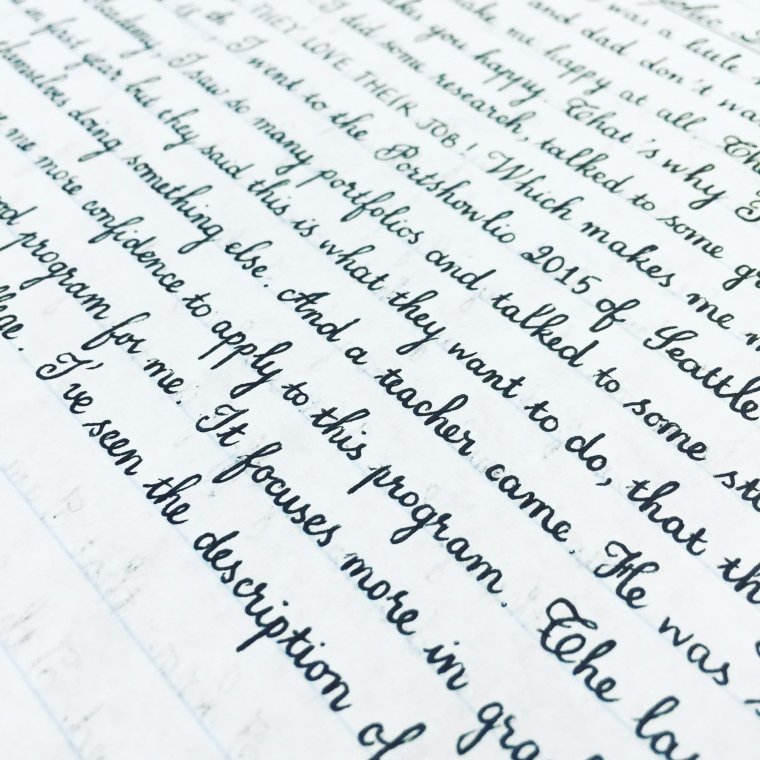 was a little
and dad don't wa
make me happy at all. The
you happy That's why I
I did some research, talked to some gr
THEY LOVE THEIR JOB! Which makes me m
I went to the Portshowlio 2015 of Seattle
Academy. I saw so many portfolios and talked to some st
in first year but they said this is what they want to do, that th
themselves doing something else. And a teacher came. He was s
me more confidence to apply to this program. The la
program for me. It focuses more in gra
I've seen the description of